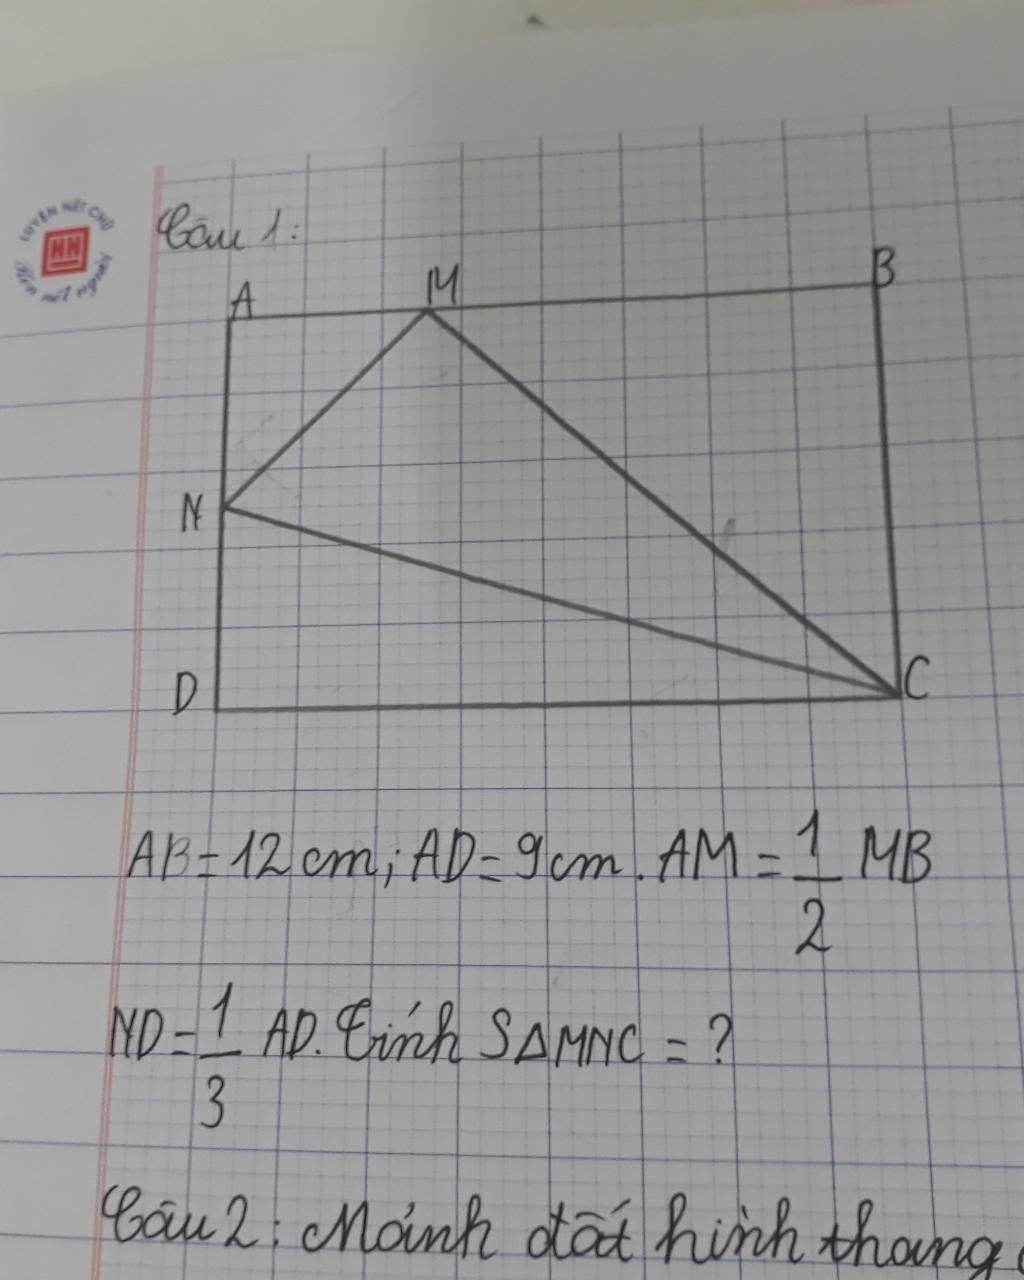 LUYỆN NÉT CHỮ
HN
Rèn nết người
Câu 1:
A M B
N
D C
AB = 12 cm; AD = 9 cm. AM = 1/2 MB
ND = 1/3 AD. Tính SΔMNC = ?
Câu 2: Mảnh đất hình thang